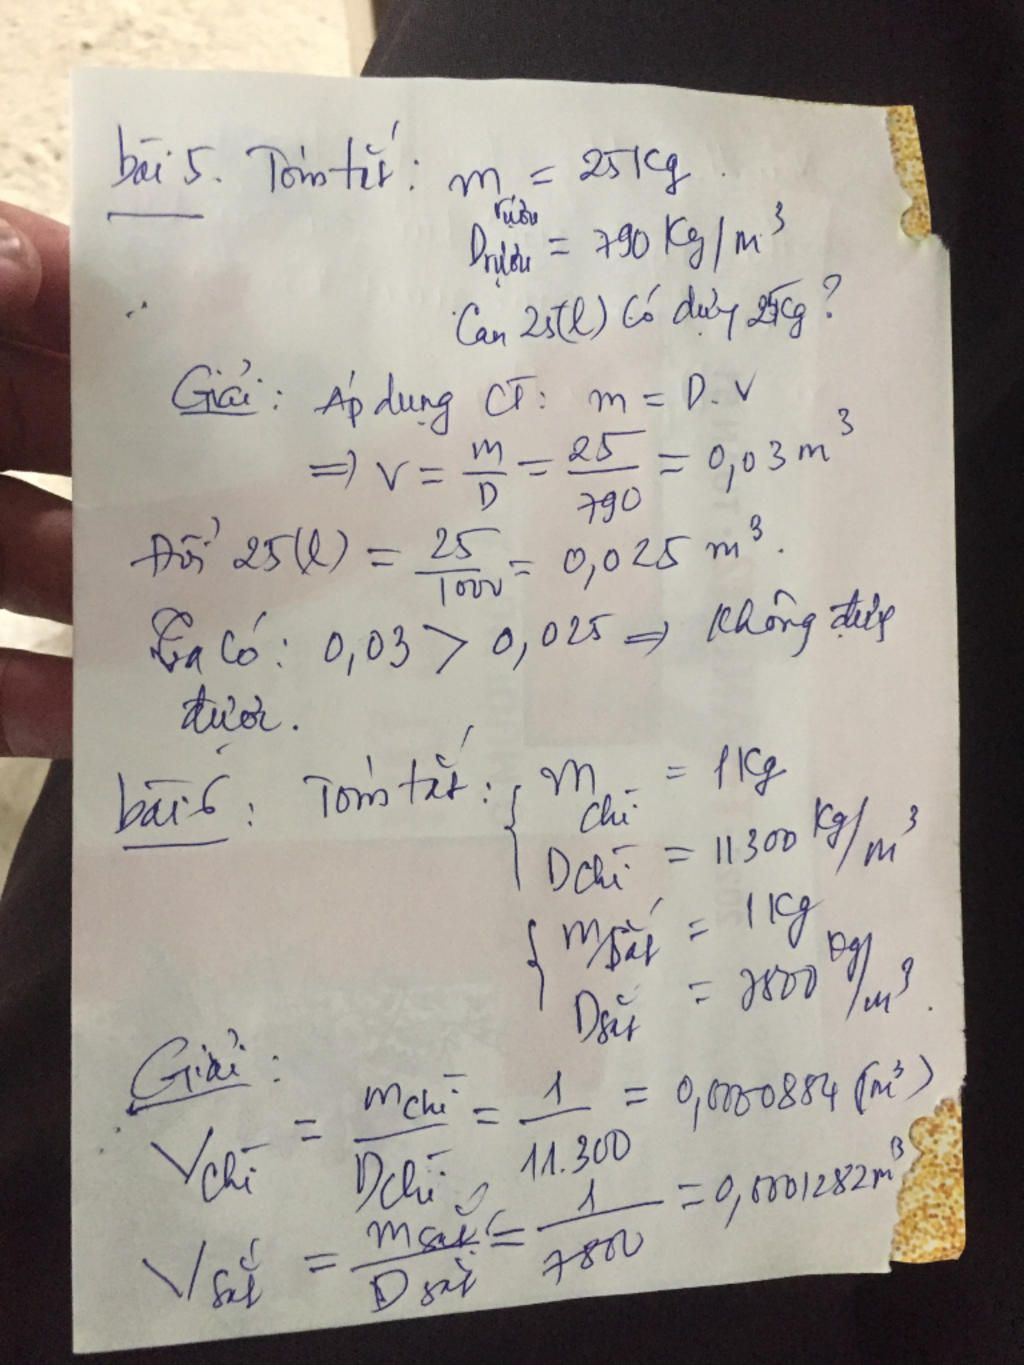 bài 5. Tóm tắt: m rượu = 25 Kg.
D rượu = 790 Kg/m³
Can 25(l) có đựng 25Kg?
Giải: Áp dụng CT: m = D.V
=> V = m/D = 25/790 = 0,03 m³
Đổi 25(l) = 25/1000 = 0,025 m³.
Ta có: 0,03 > 0,025 => Không đựng
được.
bài 6: Tóm tắt: { m chì = 1Kg
D chì = 11300 Kg/m³
{ m sắt = 1Kg
D sắt = 7800 Kg/m³.
Giải:
V chì = m chì/D chì = 1/11.300 = 0,0000884 (m³)
V sắt = m sắt/D sắt = 1/7800 = 0,0001282 m³